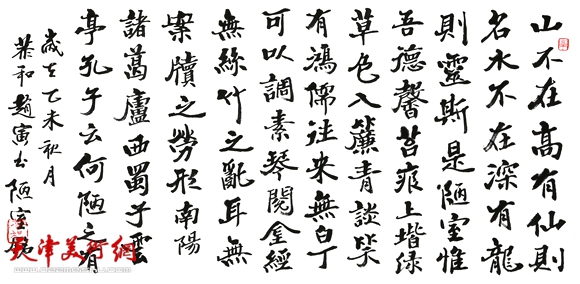 山不在高有仙則
名水不在深有龍
則靈斯是陋室惟
吾德馨苔痕上堦绿
草色入簾青談笑
有鴻儒往来無白丁
可以調素琴閱金經
無絲竹之亂耳無
案牘之勞形南陽
諸葛廬西蜀子雲
亭孔子云何陋之有
歲在乙未秋月
趙寅书 陋室銘
天津美術網